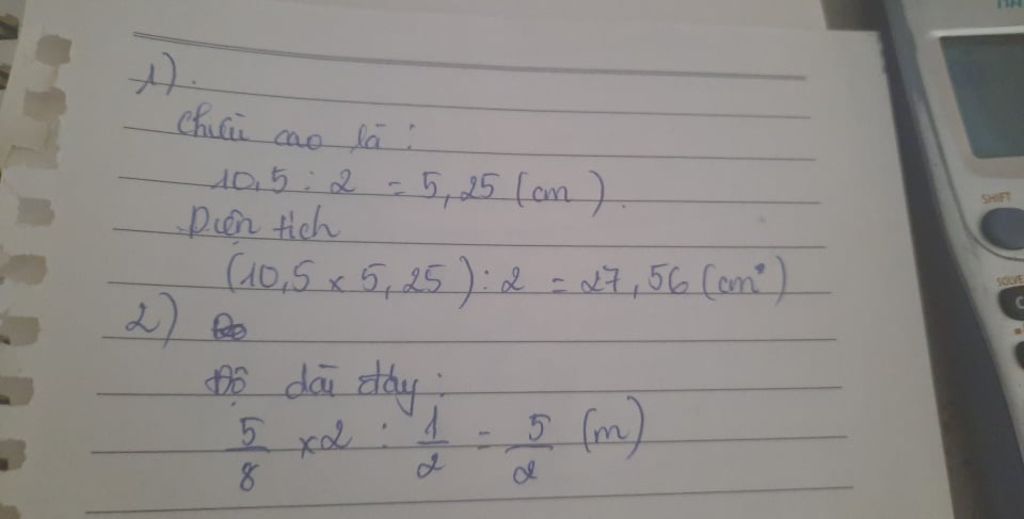 1).
Chiều cao là:
10,5 : 2 = 5,25 (cm).
Diện tích
(10,5 x 5,25) : 2 = 27,56 (cm²)
2)
Độ dài đáy:
5/8 x2 : 1/2 = 5/2 (m)
SHIFT
SOLVE